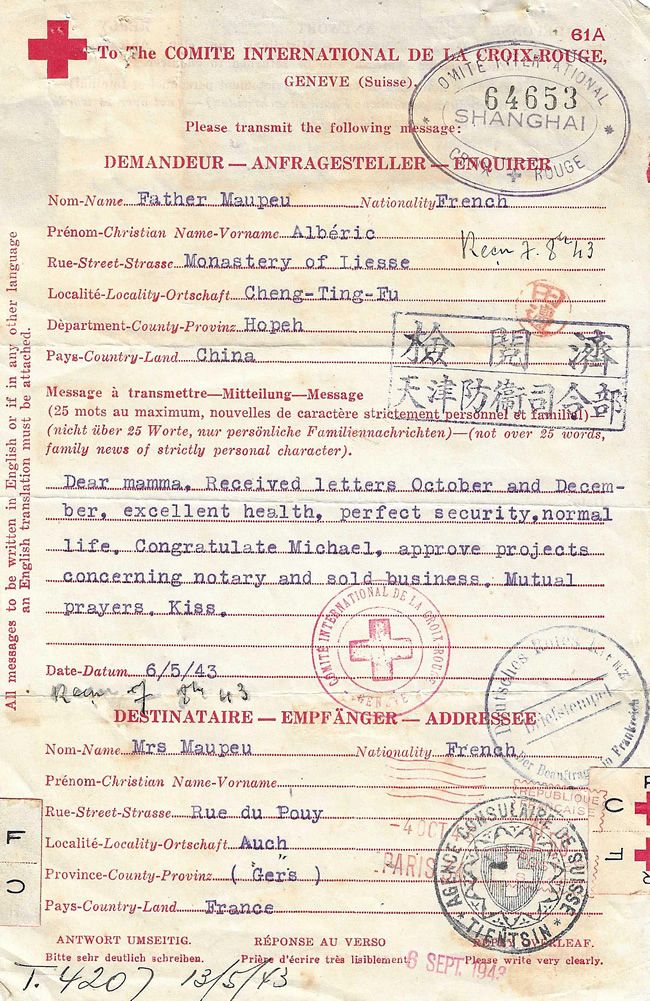 61A
To The COMITE INTERNATIONAL DE LA CROIX-ROUGE,
GENEVE (Suisse).
OMITE INTER ATIONAL
64653
SHANGHAI
CROIX ROUGE
Please transmit the following message:
DEMANDEUR — ANFRAGESTELLER — ENQUIRER
Nom-Name Father Maupeu Nationality French
Prénom-Christian Name-Vorname Albéric
Rue-Street-Strasse Monastery of Liesse
Localité-Locality-Ortschaft Cheng-Ting-Fu
Dèpartment-County-Provinz Hopeh
Pays-Country-Land China
檢閱濟
天津防衛司令部
Message à transmettre—Mitteilung—Message
(25 mots au maximum, nouvelles de caractère strictement personnel et familial)
(nicht über 25 Worte, nur persönliche Familiennachrichten)—(not over 25 words,
family news of strictly personal character).
Dear mamma, Received letters October and Decem-
ber, excellent health, perfect security, normal
life. Congratulate Michael, approve projects
concerning notary and sold business. Mutual
prayers. Kiss.
All messages to be written in English or if in any other language
an English translation must be attached.
COMITÉ INTERNATIONAL DE LA CROIX-ROUGE
GENÈVE
Date-Datum 6/5/43
Deutsches Rotes Kreuz
Briefstempel
Der Beauftragte in Frankreich
DESTINATAIRE — EMPFÄNGER — ADDRESSEE
Nom-Name Mrs Maupeu Nationality French
Prénom-Christian Name-Vorname
Rue-Street-Strasse Rue du Pouy
Localité-Locality-Ortschaft Auch
Province-County-Provinz (Gers)
Pays-Country-Land France
REPUBLIQUE
FRANCAISE
-4 OCT 4
PARIS
AGENCE CONSULAIRE DE SUISSE
TIENTSIN
ANTWORT UMSEITIG. RÉPONSE AU VERSO REPLY OVERLEAF.
Bitte sehr deutlich schreiben. Prière d'écrire très lisiblement. Please write very clearly.
6 SEPT. 1943
T. 4207 13/5/43